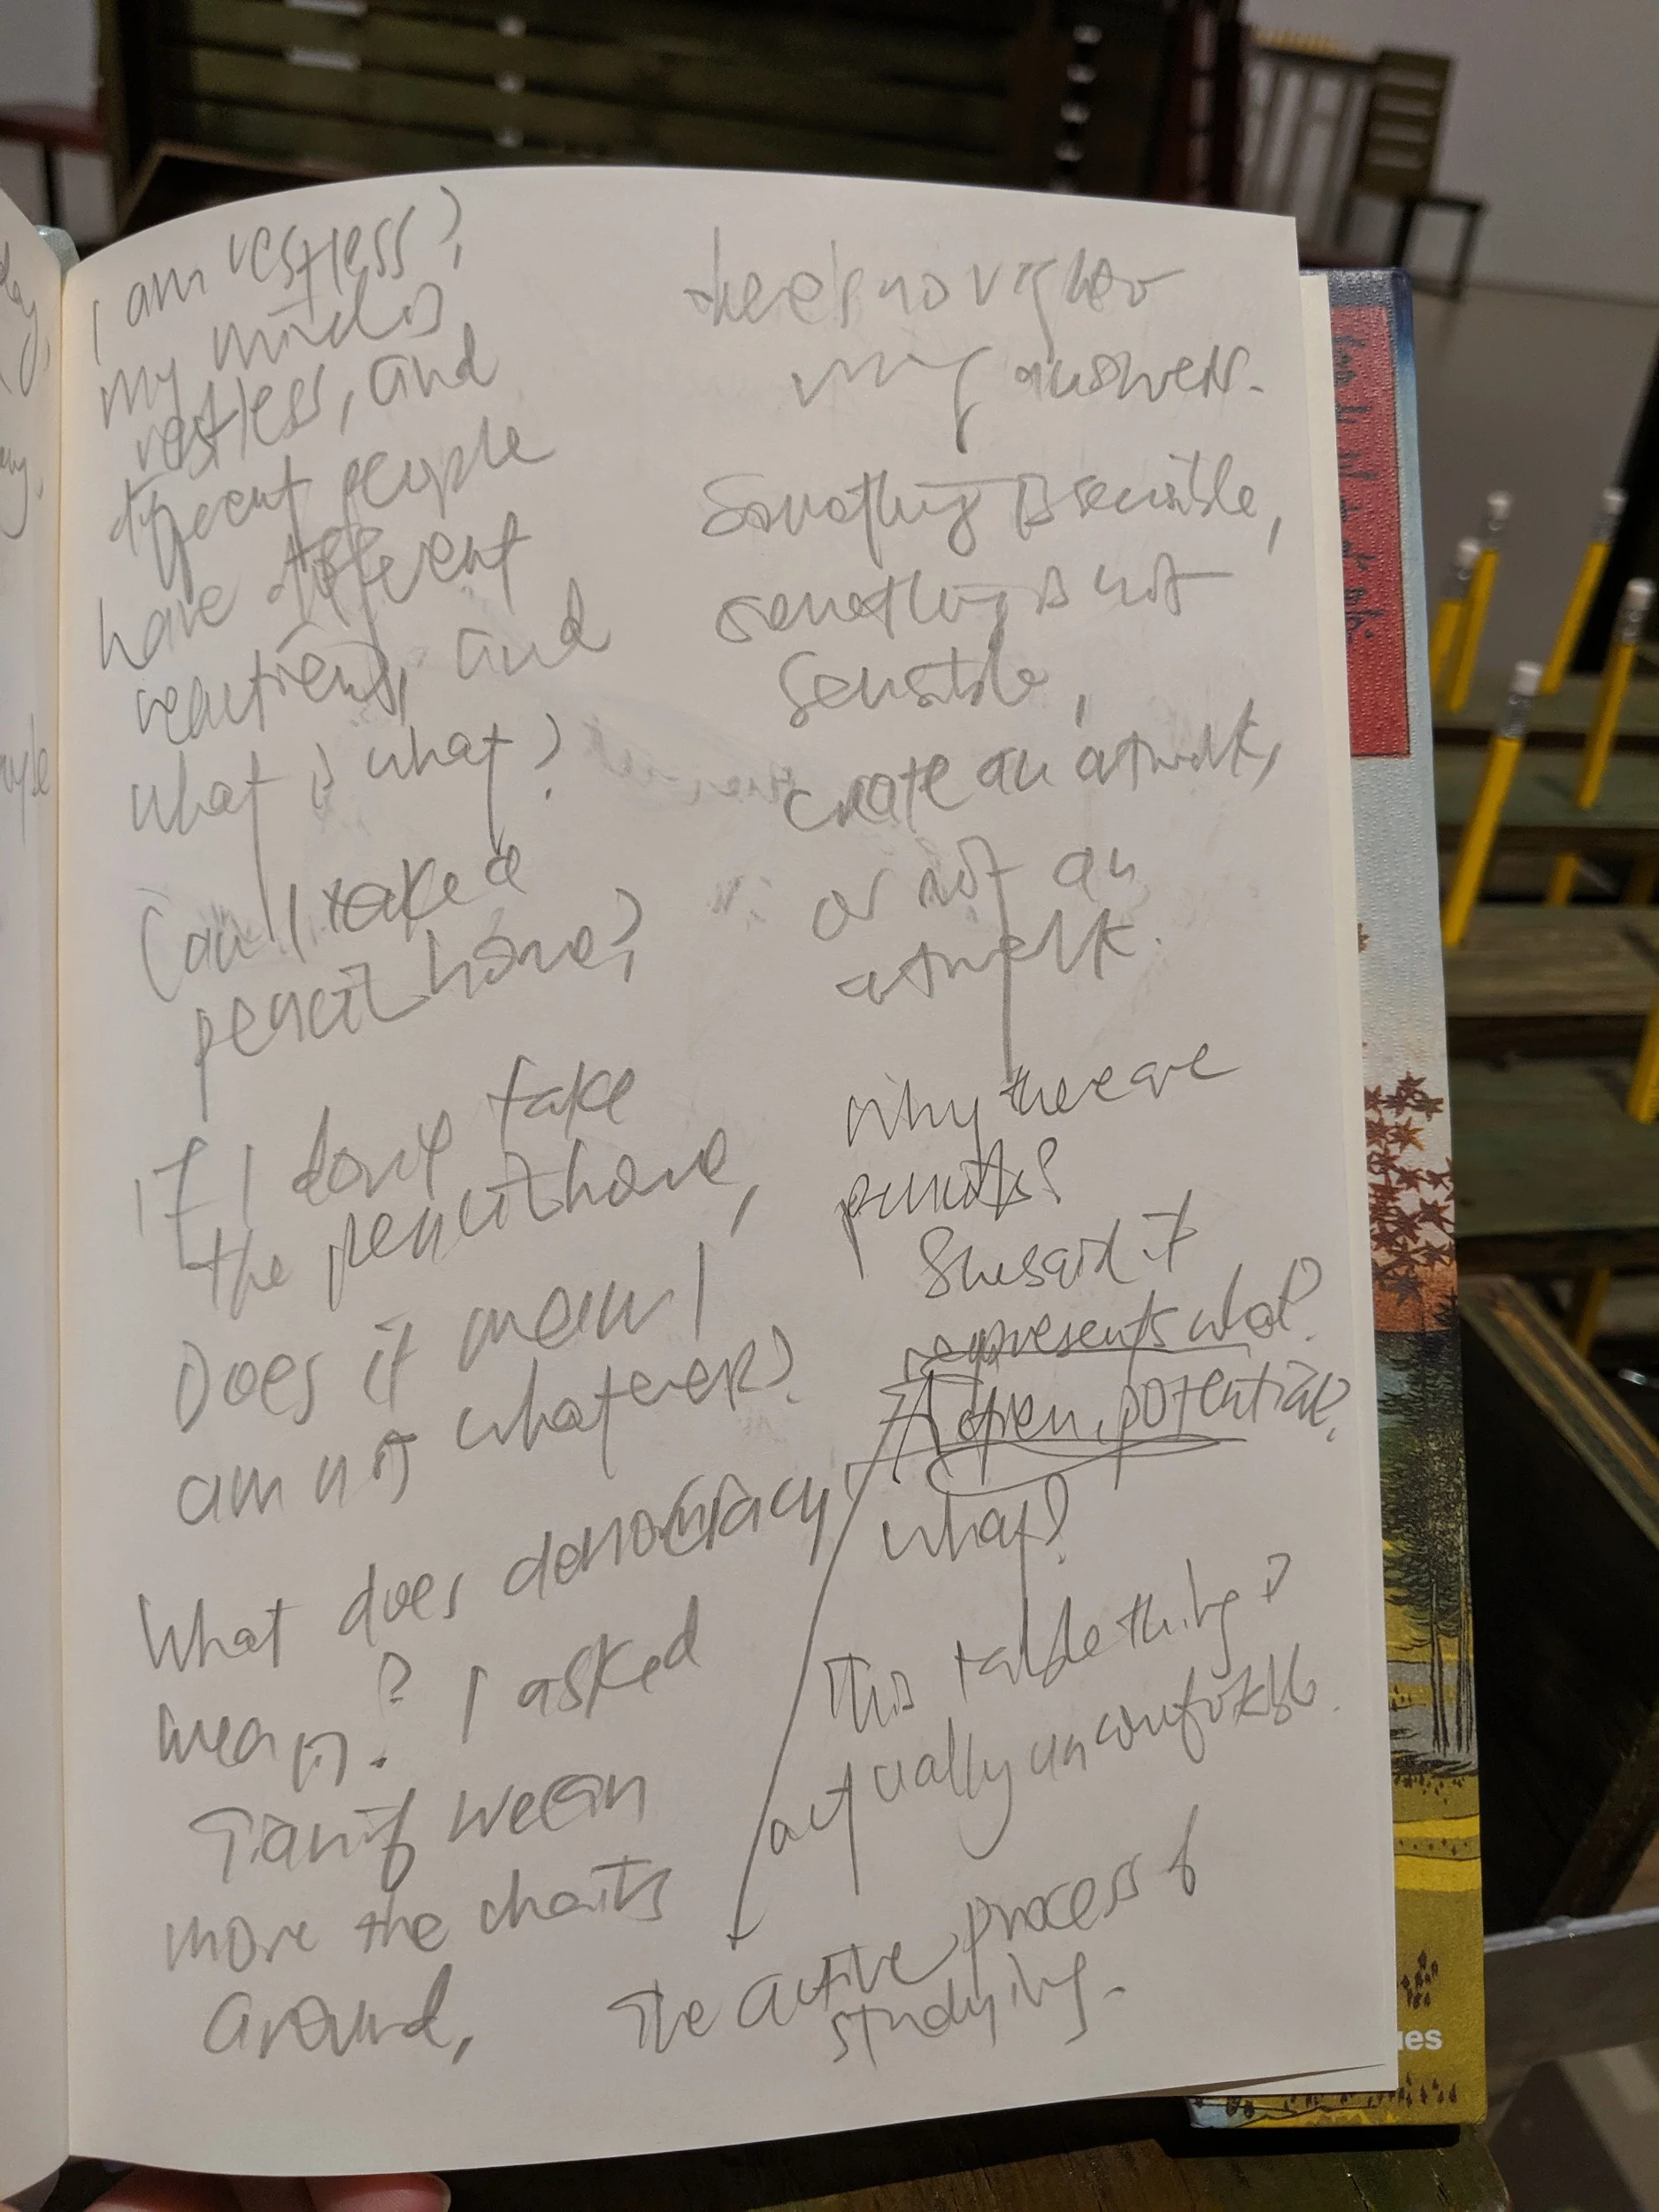 I am restless?
my mind is
restless, and
different people
have different
reactions, and
what is what?
Can I take a
pencil home?
If I don't take
the pencil home,
Does it mean I
am not whatever?
What does democracy
mean? I asked
Tania if we can
move the chairs
around,
there's no right or
wrong answers.
Something is sensible,
something is not
sensible,
create an artwork,
or not an
artwork.
Why there are
pencils?
She said it
represents what?
A open, potential?
what?
This table thing is
actually uncomfortable.
The active process of
studying.
ues